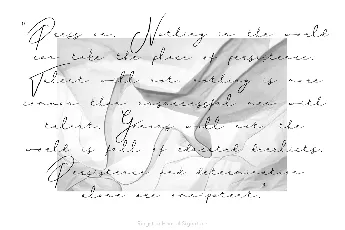 "Press on. Nothing in the world
can take the place of persistence.
Talent will not nothing is more
common than unsuccessful men with
talent. Genius will not the
world is full of educated derelicts.
Persistence and determination
alone are omnipotent."